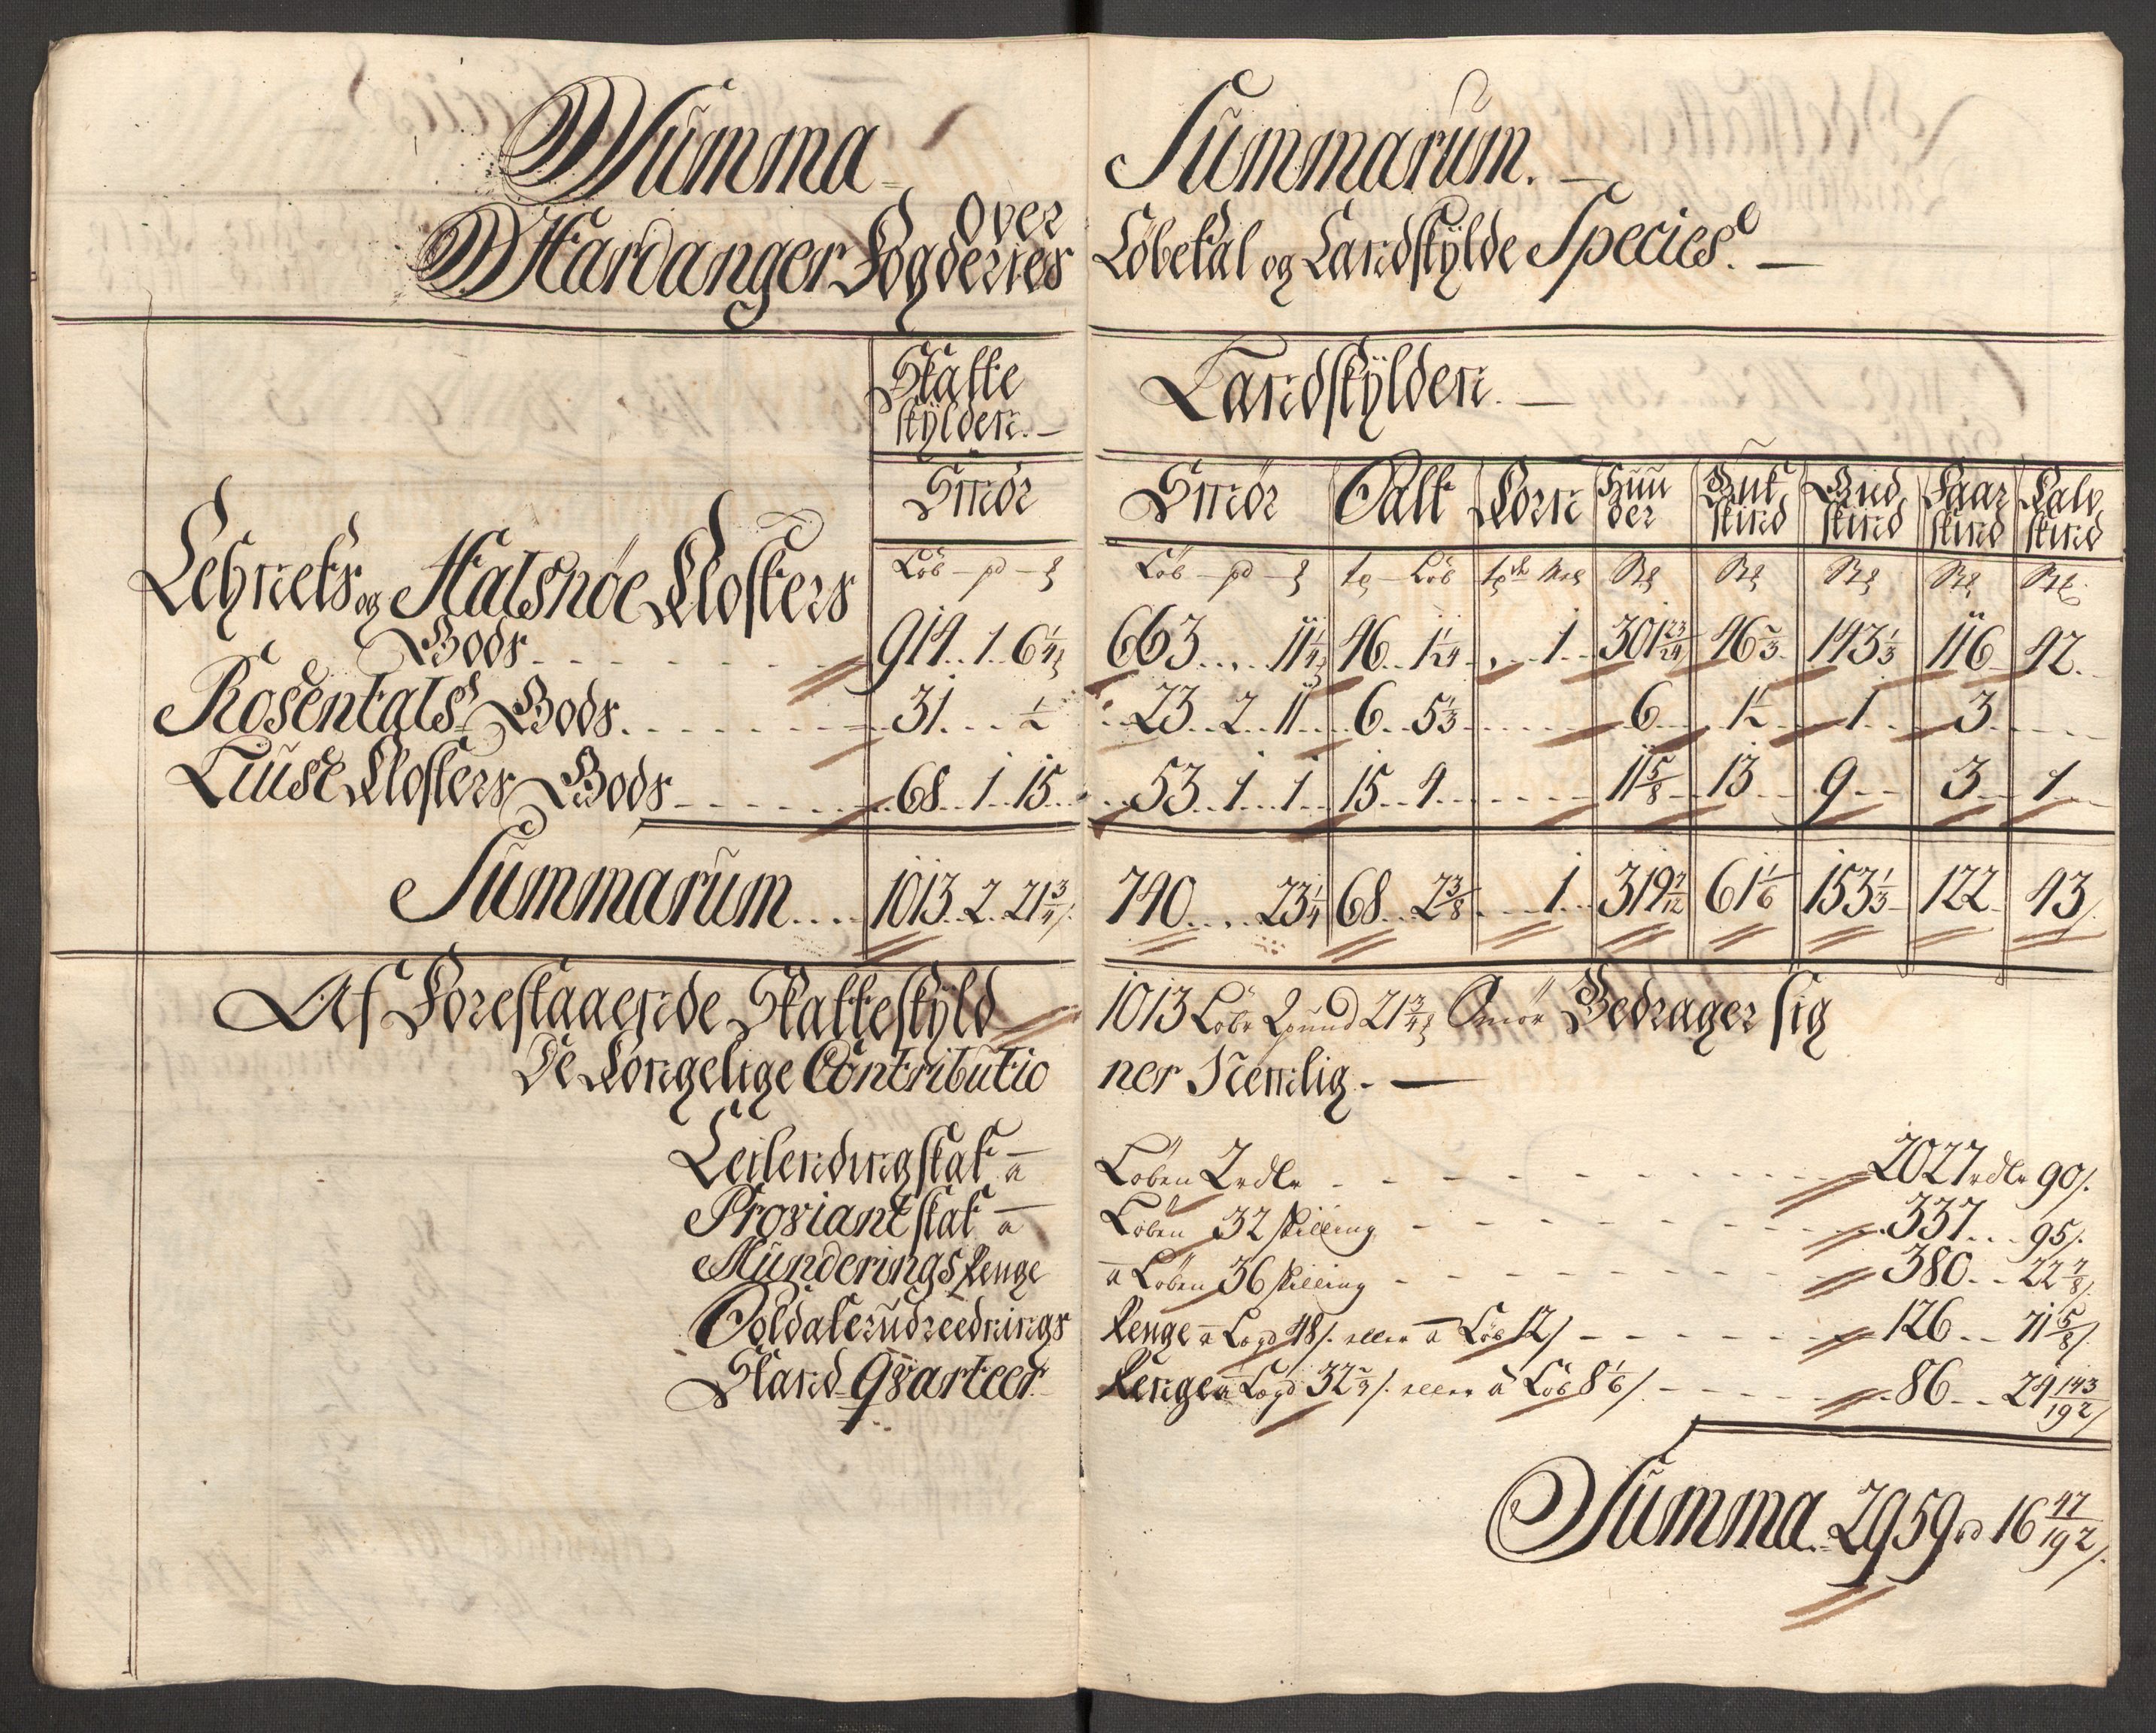 Summa Summarum.
over
Hardanger Fogderies Løbetal og Landskylde Species.
Skatte skylden. Landskylden.
Smør Smør Salt Korn Huuder Buk skind Gied skind Faar skind Kalv skind
Løb - pd - Løb - pd - Løb
Lehnets og Halsnöe Closters
Gods 914 .. 1 .. 6 1/4 663 .. , .. 11 1/4 46 .. 1 1/24 , .. 1 301 23/24 46 2/3 143 1/3 116 42
Rosentals Gods 31 .. . 1/2 23 .. 2 .. 11 6 .. 5 1/3 6 1 1/2 1 3
Liuse Closters Gods 68 .. 1 .. 15 53 .. 1 .. 1 15 .. 4 11 5/8 13 9 3 1
Summarum 1013 .. 2 .. 21 3/4 740 .. , .. 23 1/4 68 .. 2 3/8 1 319 7/12 61 1/6 153 1/3 122 43
Af Forestaaende Skatteskyld 1013 Løbr 2 pund 21 3/4 Smör Bedrager sig
De Kongelige Contributioner Nemlig. -
Leilendingskat a Løben 2 rdlr 2027 rdlr 90 /.
Proviantskat a Løben 32 skilling 337 .. 95 /.
Munderings Penge a Løben 36 skilling 380 .. 22 7/8 /.
Soldaterudreednings Penge a Lægd 48 /. eller a Løb 12 / 126 .. 71 5/8 /.
Stand Qvarteer Penge a Lægd 32 2/3 /. eller a Løb 8 1/6 / 86 .. 24 143/192 /
Summa. 2959 rd 16 47/192 /.